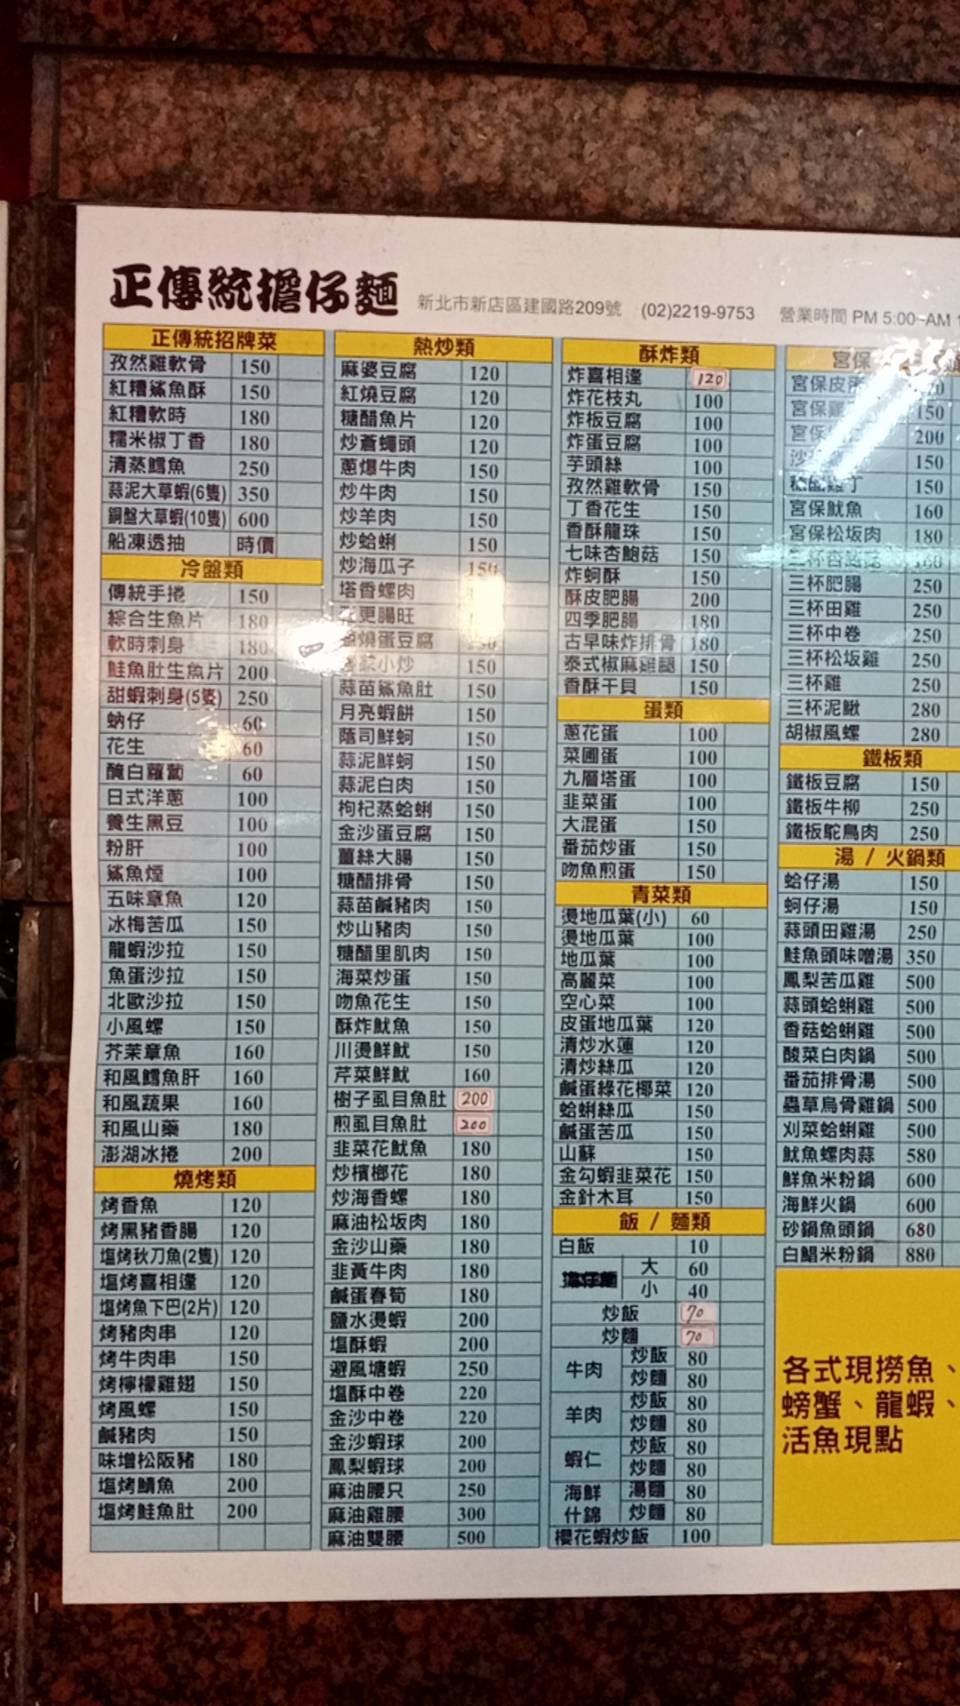 正傳統擔仔麵 新北市新店區建國路209號 (02)2219-9753 營業時間 PM 5:00~AM
正傳統招牌菜
孜然雞軟骨 150
紅糟鯊魚酥 150
紅糟軟時 180
糯米椒丁香 180
清蒸鱈魚 250
蒜泥大草蝦(6隻) 350
鋼盤大草蝦(10隻) 600
船凍透抽 時價
冷盤類
傳統手捲 150
綜合生魚片 180
軟時刺身 180
鮭魚肚生魚片 200
甜蝦刺身(5隻) 250
蚋仔 60
花生 60
醃白蘿蔔 60
日式洋蔥 100
養生黑豆 100
粉肝 100
鯊魚煙 100
五味章魚 120
冰梅苦瓜 150
龍蝦沙拉 150
魚蛋沙拉 150
北歐沙拉 150
小風螺 150
芥茉章魚 160
和風鱈魚肝 160
和風蔬果 160
和風山藥 180
澎湖冰捲 200
燒烤類
烤香魚 120
烤黑豬香腸 120
塩烤秋刀魚(2隻) 120
塩烤喜相逢 120
塩烤魚下巴(2片) 120
烤豬肉串 120
烤牛肉串 150
烤檸檬雞翅 150
烤風螺 150
鹹豬肉 150
味增松阪豬 180
塩烤鯖魚 200
塩烤鮭魚肚 200
熱炒類
麻婆豆腐 120
紅燒豆腐 120
糖醋魚片 120
炒蒼蠅頭 120
蔥爆牛肉 150
炒牛肉 150
炒羊肉 150
炒蛤蜊 150
炒海瓜子 150
塔香螺肉
更腸旺
燒蛋豆腐
小炒 150
蒜苗鯊魚肚 150
月亮蝦餅 150
蔭司鮮蚵 150
蒜泥鮮蚵 150
蒜泥白肉 150
枸杞蒸蛤蜊 150
金沙蛋豆腐 150
薑絲大腸 150
糖醋排骨 150
蒜苗鹹豬肉 150
炒山豬肉 150
糖醋里肌肉 150
海菜炒蛋 150
吻魚花生 150
酥炸魷魚 150
川燙鮮魷 150
芹菜鮮魷 160
樹子虱目魚肚 200
煎虱目魚肚 200
韭菜花魷魚 180
炒檳榔花 180
炒海香螺 180
麻油松坂肉 180
金沙山藥 180
韭黃牛肉 180
鹹蛋春筍 180
鹽水燙蝦 200
塩酥蝦 200
避風塘蝦 250
塩酥中卷 220
金沙中卷 220
金沙蝦球 200
鳳梨蝦球 200
麻油腰只 250
麻油雞腰 300
麻油雙腰 500
酥炸類
炸喜相逢 120
炸花枝丸 100
炸板豆腐 100
炸蛋豆腐 100
芋頭絲 100
孜然雞軟骨 150
丁香花生 150
香酥龍珠 150
七味杏鮑菇 150
炸蚵酥 150
酥皮肥腸 200
四季肥腸 180
古早味炸排骨 180
泰式椒麻雞腿 150
香酥干貝 150
蛋類
蔥花蛋 100
菜圃蛋 100
九層塔蛋 100
韭菜蛋 100
大混蛋 150
番茄炒蛋 150
吻魚煎蛋 150
青菜類
燙地瓜葉(小) 60
燙地瓜葉 100
地瓜葉 100
高麗菜 100
空心菜 100
皮蛋地瓜葉 120
清炒水蓮 120
清炒絲瓜 120
鹹蛋綠花椰菜 120
蛤蜊絲瓜 150
鹹蛋苦瓜 150
山蘇 150
金勾蝦韭菜花 150
金針木耳 150
飯 / 麵類
白飯 10
擔仔麵 大 60
小 40
炒飯 70
炒麵 70
牛肉 炒飯 80
炒麵 80
羊肉 炒飯 80
炒麵 80
蝦仁 炒飯 80
炒麵 80
海鮮什錦 湯麵 80
炒麵 80
櫻花蝦炒飯 100
宮保
宮保皮
宮保 150
宮保 200
150
150
宮保魷魚 160
宮保松坂肉 180
三杯杏鮑菇 160
三杯肥腸 250
三杯田雞 250
三杯中卷 250
三杯松坂雞 250
三杯雞 250
三杯泥鰍 280
胡椒風螺 280
鐵板類
鐵板豆腐 150
鐵板牛柳 250
鐵板鴕鳥肉 250
湯 / 火鍋類
蛤仔湯 150
蚵仔湯 150
蒜頭田雞湯 250
鮭魚頭味噌湯 350
鳳梨苦瓜雞 500
蒜頭蛤蜊雞 500
香菇蛤蜊雞 500
酸菜白肉鍋 500
番茄排骨湯 500
蟲草烏骨雞鍋 500
刈菜蛤蜊雞 500
魷魚螺肉蒜 580
鮮魚米粉鍋 600
海鮮火鍋 600
砂鍋魚頭鍋 680
白鯧米粉鍋 880
各式現撈魚、
螃蟹、龍蝦、
活魚現點